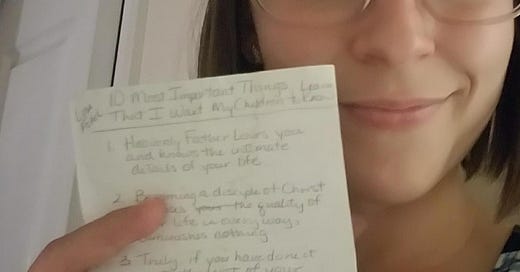 10 Most Important Things
That I Want My Children to Know
1. Heavenly Father Loves you
and knows the intimate
details of your life
2. a disciple of Christ
your the quality of
life in every way,
nothing
3. Truly, if you have done it
of your